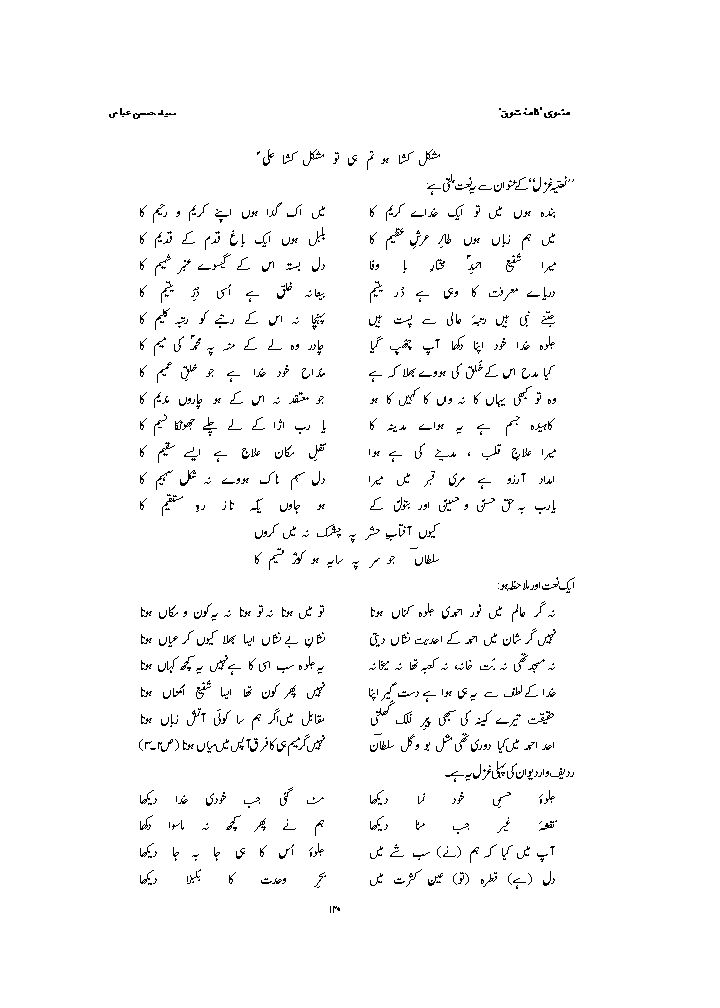 مثنوی "نامۂ شوق" سید حسن عباس
مشکل کشا ہو تم ہی تو مشکل کشا علیؑ
"نعتیہ غزل" کے عنوان سے یہ نعت ملتی ہے:
بندہ ہوں میں تو ایک خدائے کریم کا میں اک گدا ہوں اپنے کریم و رحیم کا
میں ہم زباں ہوں طائرِ عرشِ عظیم کا بلبل ہوں ایک باغِ قدم کے قدیم کا
میرا شفیع احمدِؐ مختار با وفا دل بستہ اس کے گیسوے عنبر شمیم کا
دریاے معرفت کا وہی ہے دُر یتیم بیعانہ خلق ہے اُسی دُرِّ یتیم کا
جتنے نبی ہیں رتبۂ عالی سے پست ہیں پہنچا نہ اس کے رتبے کو رتبہ کلیم کا
جلوہ خدا خود اپنا دکھا آپ چھپ گیا چادر وہ لے کے منہ پہ محمدؐ کی میم کا
کیا مدح اس کے خُلق کی ہووے بھلا کہ ہے مداح خود خدا ہے جو خلقِ عمیم کا
وہ تو کبھی یہاں کا نہ واں کا کہیں کا ہو جو معتقد نہ اس کے ہو چاروں ندیم کا
کاہیدہ جسم ہے یہ ہواے مدینہ کا یا رب اڑا کے لے چلے جھونکا نسیم کا
میرا علاجِ قلب ، مدینے کی ہے ہوا نقلِ مکان علاج ہے ایسے سقیم کا
امداد آرزو ہے مری قبر میں میرا دل سہم ناک ہووے نہ شکل سہیم کا
یارب بہ حق حسنؑ و حسینؑ اور بتولؑ کے ہو جاوں یکہ تاز رہِ مستقیم کا
کیوں آفتابِ حشر پہ چشمک نہ میں کروں
سلطاںؔ جو سر پہ سایہ ہو کوثر قسیم کا
ایک نعت اور ملاحظہ ہو:
نہ گر عالم میں نور احمدی جلوہ کناں ہوتا تو میں ہوتا نہ تو ہوتا نہ یہ کون و مکاں ہوتا
نہیں گر شان میں احمد کے احدیت نشاں دیتی نشانِ بے نشاں ایسا بھلا کیوں کر عیاں ہوتا
نہ مسجد تھی نہ بُت خانہ، نہ کعبہ تھا نہ میخانہ یہ جلوہ سب اسی کا ہے نہیں یہ کچھ کہاں ہوتا
خدا کے لطف سے یہ ہی ہوا ہے دست گیر اپنا نہیں پھر کون تھا ایسا شفیعِ انساں ہوتا
حقیقت تیرے کینہ کی سبھی پیرِ فلک کھلتی مقابل میں اگر ہم سا کوئی آتش زباں ہوتا
احد احمد میں کیا دوری تھی مثل بو و گل سلطاںؔ نہیں گر میم ہی کا فرق آپس میں میاں ہوتا (ص۲-۳)
ردیف وار دیوان کی پہلی غزل یہ ہے۔
جلوۂ حسن خود نما دیکھا مٹ گئی جب خودی خدا دیکھا
نقشۂ غیر جب مٹا دیکھا ہم نے پھر کچھ نہ ماسوا دکھا
آپ میں کیا کہ ہم (نے) سب شے میں جلوۂ اُس کا ہی جا بہ جا دیکھا
دل (ہے) قطرہ (تو) عین کثرت میں بحرِ وحدت کا بلبلا دیکھا
۱۳۰